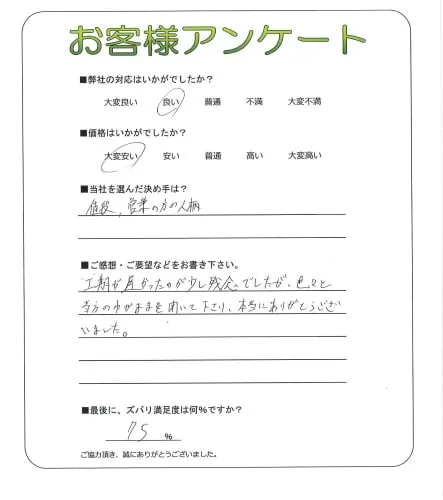 お客様アンケート
■弊社の対応はいかがでしたか？
大変良い 良い 普通 不満 大変不満
■価格はいかがでしたか？
大変安い 安い 普通 高い 大変高い
■当社を選んだ決め手は？
値段、営業の方の人柄
■ご感想・ご要望などをお書き下さい。
工期が長かったのが少し残念でしたが、色々と
当方のわがままを聞いて下さり、本当にありがとうござ
いました。
■最後に、ズバリ満足度は何％ですか？
75 ％
ご協力頂き、誠にありがとうございました。